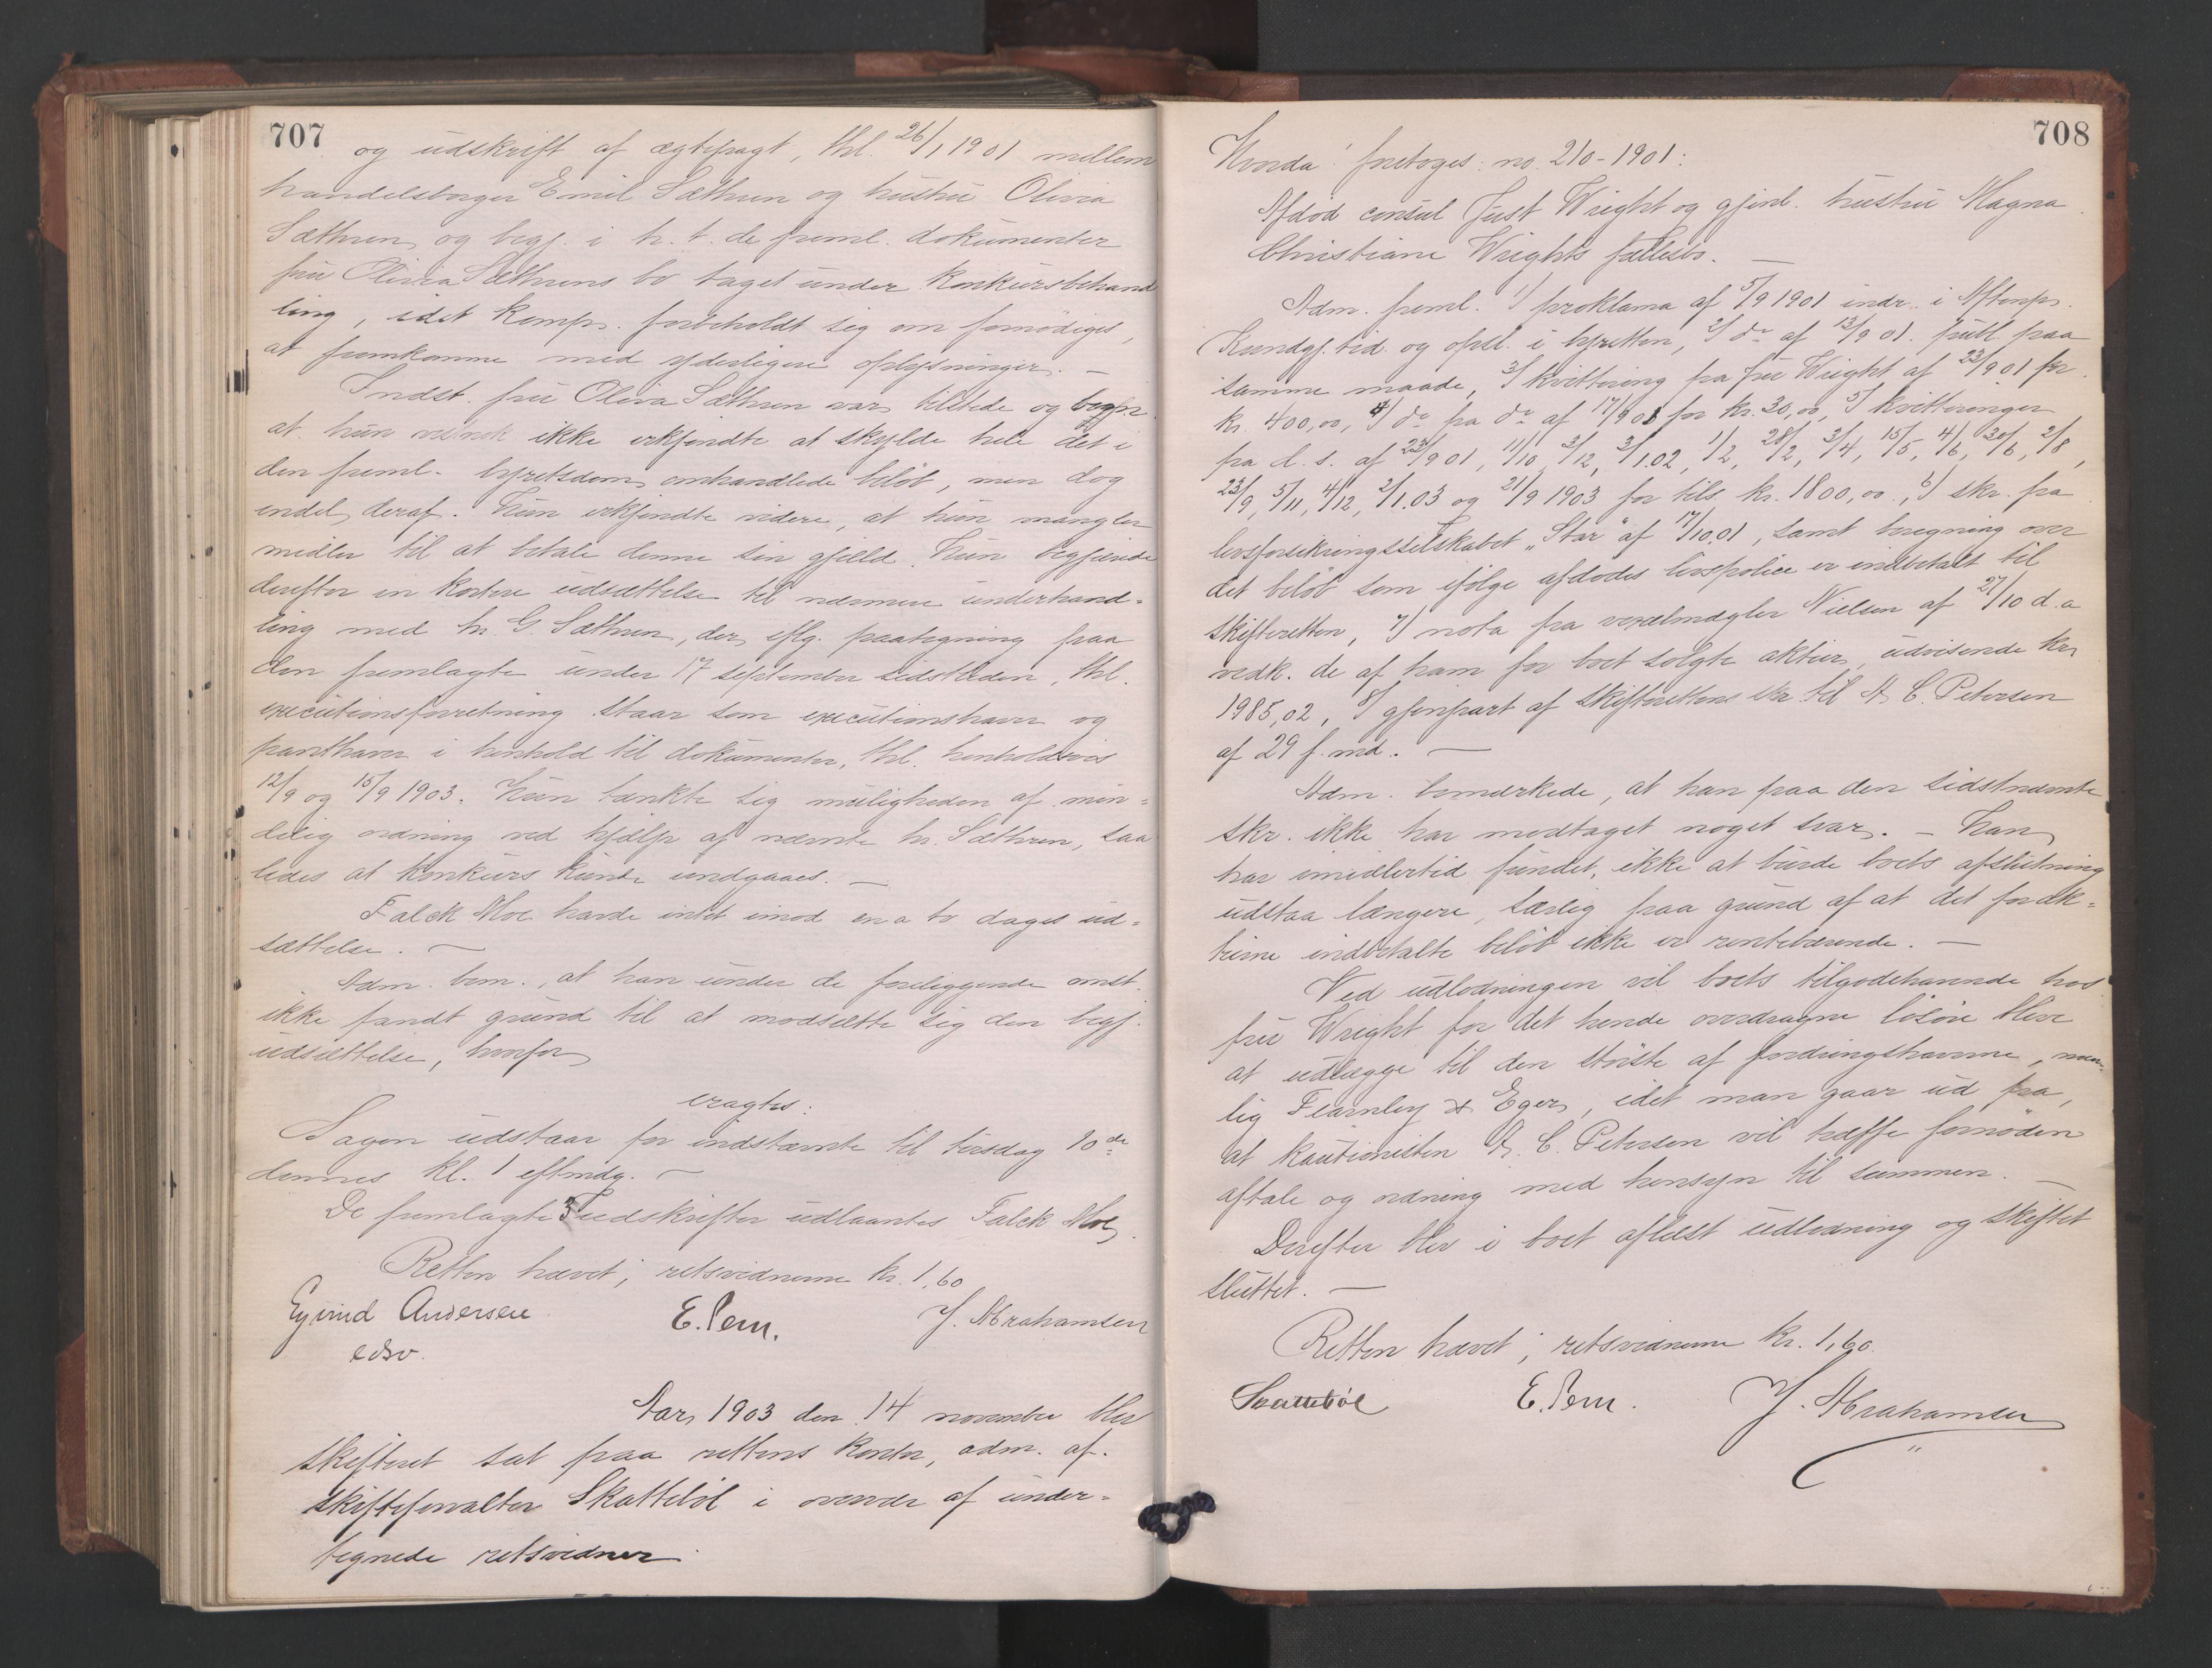 707
og udskrift af ægtepagt, thl. 26/1 1901 mellem
handelsborger Emil Sæthren og hustru Olivia
Sæthren, og begj. i h. t. de freml. dokumenter
fru Olivia Sæthrens bo taget under konkursbehand
ling, idet komp. forbeholdt sig om fornødiges,
at fremkomme med yderligere oplysninger. –
Indst. fru Olivia Sæthren var tilstede og
at hun vistnok ikke erkjendte at skylde hele det i
den freml. byretsdom omhandlede beløb, men dog
endel deraf. Hun erkjendte videre, at hun mangler
midler til at betale denne sin gjæld. Hun begjærede
derefter en kortere udsættelse til nærmere underhand=
ling med hr. G. Sæthren, der, iflg. paategning paa
den fremlagte under 17 september sidstleden, thl.
executionsforretning staar som executionshaver og
panthaver i henhold til dokumenter, thl. henholdsvis
12/9 og 15/9 1903. Hun tænkte sig muligheden af min=
delig ordning ved hjælp af nævnte hr. Sæthren, saa
ledes at konkurs kunde undgaaes. –
Falck Moe havde intet imod en a to dages ud=
sættelse. –
Adm. bem., at han under de foreliggende omst.
ikke fandt grund til at modsætte sig den begj.
udsættelse, hvorfor
eragtes:
Sagen udstaar for indstævnte til tirsdag 10de
dennes kl. 1 eftmdg. –
De fremlagte 3 udskrifter udlaantes Falck Moe.
Retten hævet; retsvidnerne kr. 1,60
Ejvind Andersen E. Pem. J. Abrahamsen
edsv.
Aar 1903 den 14 november blev
skifteret sat paa rettens kontor, adm. af
skifteforvalter Skattebøl i overvær af under=
tegnede retsvidner.
708
Hvorda foretoges: no. 210-1901:
Afdød consul Just Wright og gjenl. hustru Magna
Christiane Wrights fællesbo. –
Adm. freml. 1/ proklama af 5/9 1901 indr. i Aftenp.
Kundgj.tid. og opsl. i byretten, 2/ do af 13/9 01. publ. paa
samme maade, 3/ kvittering fra fru Wright af 23/9 01 for
kr. 400,00, 4/ do fra do af 17/9 01 for kr. 30,00, 5/ kvitteringer
fra d. s. af 23/9 01, 11/10, 3/12, 3/1.02, 1/2, 28/2, 3/4, 15/5, 4/6, 30/6, 2/8,
23/9, 5/11, 4/12, 2/1.03 og 21/9 1903 for tils. kr. 1800,00., 6/ skr. fra
livsforsikringsselskabet "Star" af 17/10.01, samt beregning over
det beløb som ifølge afdødes livspolice er indbetalt til
skifteretten, 7/ nota fra vexelmægler Nielsen af 27/10 d. a
vedk. de af ham for boet solgte aktier, udvisende kr
1985,02, 8/ gjenpart af skifterettens skr. til A. C. Petersen
af 29 f. md. –
Adm. bemærkede, at han paa den sidstnævnte
skr. ikke har modtaget noget svar. – Han
har imidlertid fundet, ikke at burde boets afslutning
udstaa længere, særlig paa grund af at det for ak=
tierne indbetalte beløb ikke er rentebærende. –
Ved udlodningen vil boets tilgodehavende hos
fru Wright for det hende overdragne løsøre blive
at udlægge til den største af fordringshaverne, nem=
lig Fearnley & Eger, idet man gaar ud fra,
at kautionisten A. C. Petersen vil træffe fornøden
aftale og ordning med hensyn til summen. –
Derefter blev i boet oplæst udlodning og skiftet
sluttet. –
Retten hævet; retsvidnerne kr. 1,60.
Skattebøl E. Pem. J. Abrahamsen